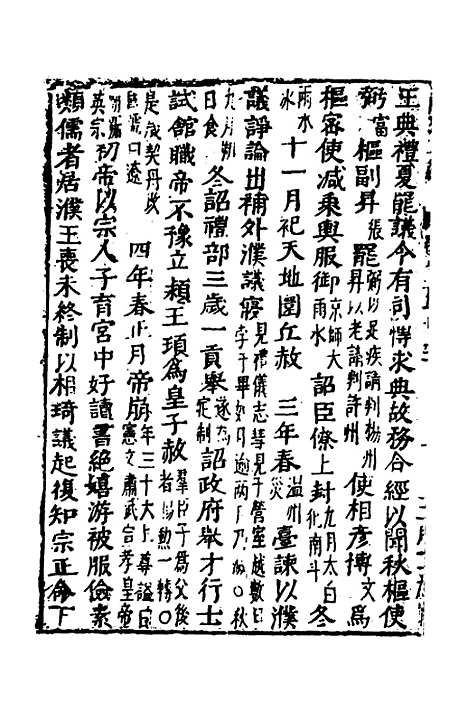 王典禮夏罷議令有司博求典故務合經以聞秋樞使
弼富樞副昇張罷弼以足疾請判揚州昇以老請判許州使相彥博文為
樞密使減乘輿服御京師大雨水詔臣僚上封九月太白犯南斗冬
雨水十一月祀天地圜丘赦三年春溫州災臺諫以濮
議諍論出補外濮議寢見禮儀志彗見于營室越數日孛于畢如月逾兩月乃滅秋
九月朔日食冬詔禮部三歲一貢舉遂為定制詔政府舉才行士
試館職帝不豫立潁王頊為皇子赦羣臣子為父後者勳一轉
是歲契丹改國號曰遼四年春正月帝崩年三十六上尊謚曰憲文肅武宣孝皇帝
廟號英宗初帝以宗人子育宮中好讀書絕嬉游被服儉素
類儒者居濮王喪未終制以相琦議起復知宗正命下